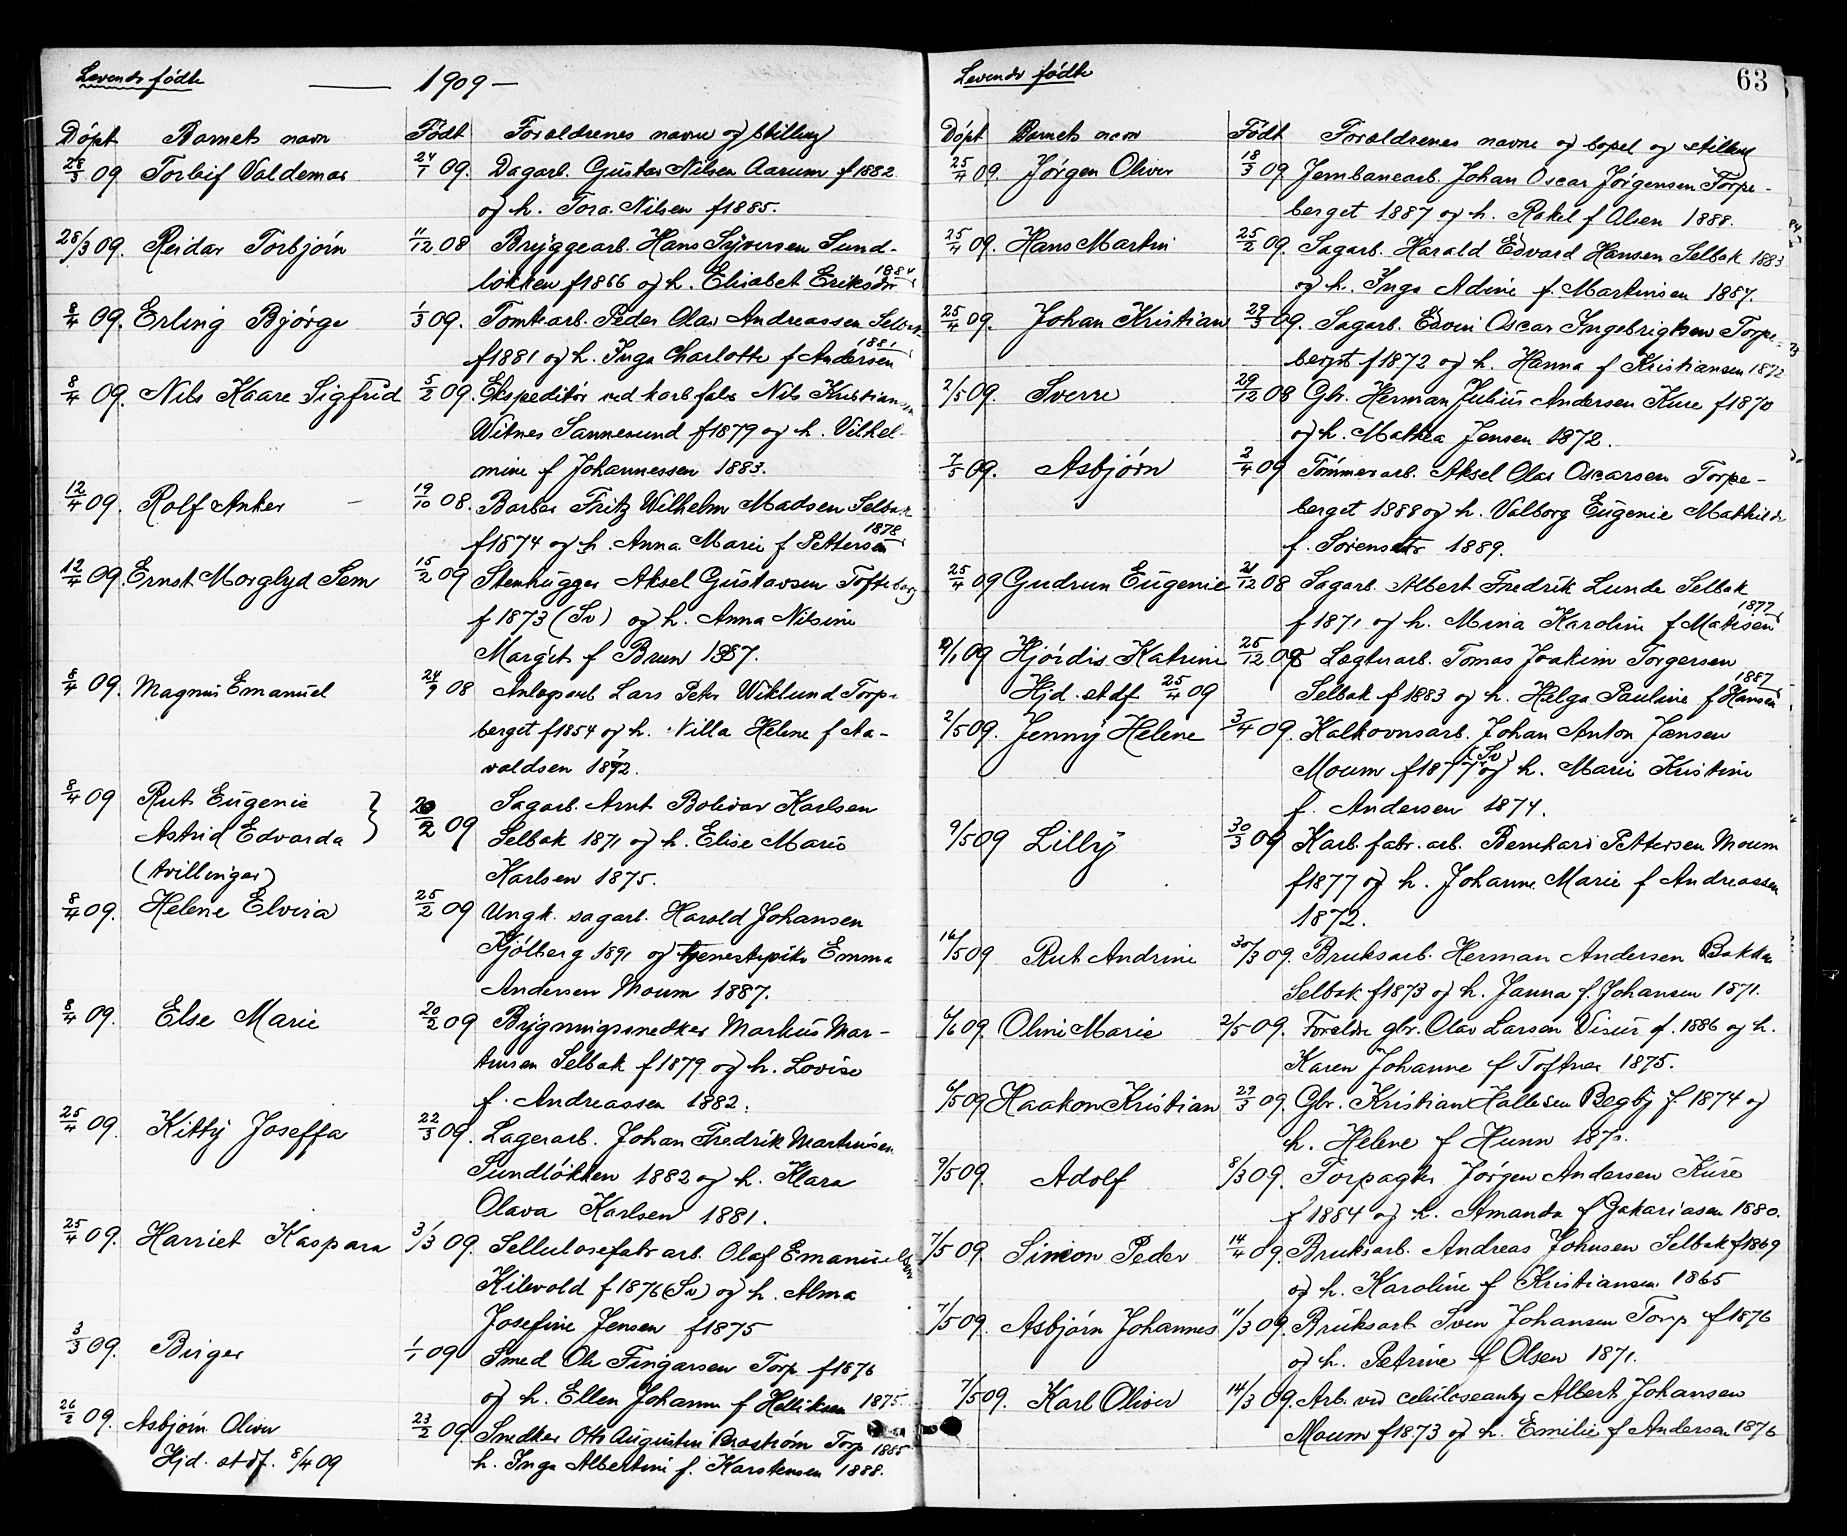 Levende födte
1909 —
Döpt Barnets navn Födt Forældrenes navne og stilling
28/3 09 Torleif Valdemar 24/1 09. Dagarb. Gustav Nilsen Aarum f 1882.
og h. Tora Nilsen f 1885.
28/3 09. Reidar Torbjörn 11/12 08 Bryggearb. Hans Syversen Sund-
lökken f 1866 og h. Elisabet Eriksdr 1884
8/4 09. Erling Björge 1/3 09. Tomtearb. Peder Olav Andreassen Selbak
f 1881 og h. Inga Charlotte f Andersen 1881
8/4 09. Nils Kaare Sigfrid 5/2 09. Ekspeditör ved karb.fabr. Nils Kristiansen
Witnes Sannesund f 1879 og h. Vilhel-
mine f Johannessen 1883.
12/4 09. Rolf Anker 19/10 08. Barber Fritz Wilhelm Madsen Selbak
f 1874 og h. Anna Marie f Pettersen 1878
12/4 09. Ernst Morglyd Sem 15/2 09 Stenhugger Aksel Gustavsen Tofteberg
f 1873 (Sv) og h. Anna Nilsine
Margit f Brun 1887.
8/4 09. Magnus Emanuel 24/9 08 Anlegsarb Lars Peter Wiklund Torpe-
berget f 1854 og h. Villa Helene f Aa-
valdsen 1872.
8/4 09 Rut Eugenie
Astrid Edvarda } 20/2 09 Sagarb. Arnt Bolivar Karlsen
Selbak 1871 og h. Elise Marie
(tvillinger) Karlsen 1875.
8/4 09. Helene Elvira 25/2 09 Ungk. sagarb. Harald Johansen
Kjölberg 1891 og tjenestepike Emma
Andersen Moum 1887.
8/4 09. Else Marie 20/2 09 Bygningssnedker Markus Mar-
tinsen Selbak f 1879 og h. Lovise
f. Andreassen 1882.
25/4 09. Kitty Joseffa 22/3 09. Lagerarb. Johan Fredrik Martinsen
Sundlökken 1882 og h. Klara
Olava Karlsen 1881.
25/4 09. Harriet Kaspara 31/3 09. Sellulosefabr arb. Olaf Emanuelsen
Kilevold f 1876 (Sv) og h. Alma
Josefine Jensen f 1875
3/3 09. Birger 1/1 09 Smed Ole Fingarsen Torp f 1876
og h. Ellen Johanne f Helliksen 1875.
26/2 09. Asbjörn Oliver 23/2 09. Snedker Otto Augustin Broström Torp 1885
Hjd. st df. 8/4 09 h. Inga Albertine f. Karstensen 1888.
Levende födte
63
Döpt Barnets navn Födt Forældrenes navne og bopel og stilling
25/4 09. Jørgen Oliver 18/3 09 Jernbanearb. Johan Oscar Jörgensen Torpe-
berget 1887 og h. Rakel f Olsen 1888.
25/4 09. Hans Martin 25/2 09. Sagarb. Harald Edvard Hansen Selbak 1883
og h. Inga Adine f. Martinsen 1887.
25/4 09. Johan Kristian 29/3 09. Sagarb. Edvin Oscar Ingebrigtsen Torpe-
berget f 1872 og h. Hanna f Kristiansen 1872
2/5 09. Sverre 29/12 08 Gbr. Herman Julius Andersen Kure f 1870
og h. Mathea Jensen 1872.
7/5 09. Asbjörn 2/4 09 Tömmerarb. Aksel Olav Oscarsen Torpe-
berget 1888 og h. Valborg Eugenie Mathilde
f. Sörensdtr 1889.
25/4 09 Gudrun Eugenie 21/12 08 Sagarb. Albert Fredrik Lunde Selbak
f 1871 og h. Mina Karoline f Matisen 1877
/1 09 Hjördis Katrine 26/12 08 Lægterarb. Tomas Joakim Torgersen
Hjd. st df 25/4 09 Selbak f 1883 og h. Helga Pauline f Hansen 1887
2/5 09. Jenny Helene 3/4 09. Kalkovnsarb. Johan Anton Jansen
Moum f 1877 (Sv) og h. Marie Kristine
f. Andersen 1874.
9/5 09 Lilly 30/3 09 Karb. fabr. arb. Bernhard Pettersen Moum
f 1877 og h. Johanne Marie f Andreassen
1872.
16/5 09 Rut Andrine 30/3 09. Bruksarb. Herman Andersen Bakken
Selbak f 1873 og h. Janna f. Johansen 1871.
6/6 09. Oline Marie 2/5 09. Foreldre gbr. Olav Larsen Visur f. 1886 og h.
Karen Johanne f Toftner 1875.
6/5 09 Haakon Kristian 29/3 09. Gbr. Kristian Hallesen Begby f. 1874 og
h. Helene f Hunn 187.
9/5 09. Adolf 8/3 09. Forpagter Jörgen Andersen Kure
f 1884 og h. Amanda f Zakariasen 1880.
7/5 09 Simeon Peder 14/4 09. Bruksarb. Andreas Johnsen Selbak f 1869
og h. Karoline f Kristiansen 1865
7/5 09. Asbjörn Johannes 11/3 09. Bruksarb Sven Johansen Torp f 1876
og h. Petrine f Olsen 1871.
7/5 09. Karl Oliver 14/3 09. Arb. ved celuloseanlg Albert Johansen
Moum f 1873 og h. Emilie f Andersen 1876